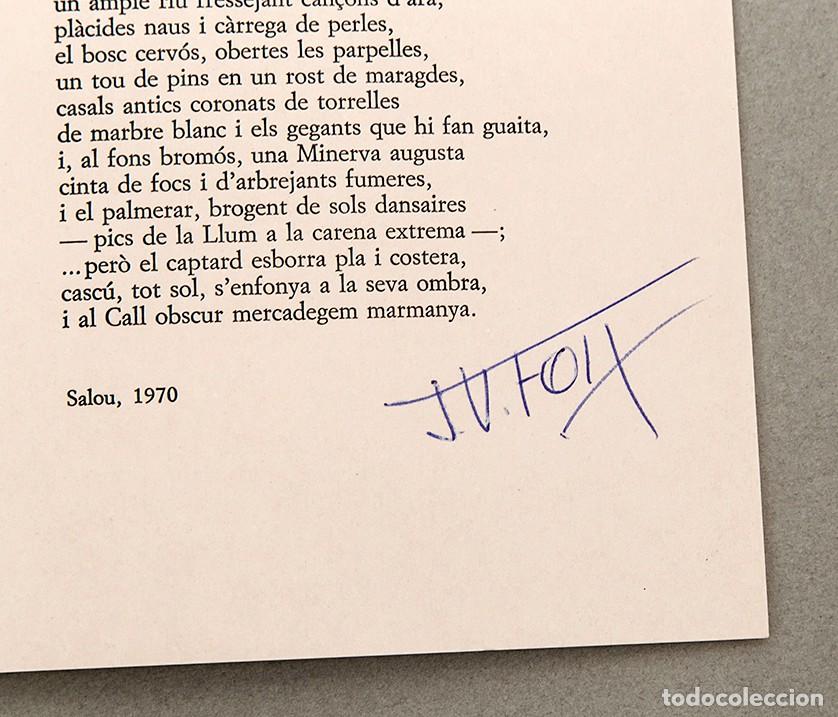 un ample riu fressejant cançons d'ara,
plàcides naus i càrrega de perles,
el bosc cervós, obertes les parpelles,
un tou de pins en un rost de maragdes,
casals antics coronats de torrelles
de marbre blanc i els gegants que hi fan guaita,
i, al fons bromós, una Minerva augusta
cinta de focs i d'arbrejants fumeres,
i el palmerar, brogent de sols dansaires
— pics de la Llum a la carena extrema —;
...però el captard esborra pla i costera,
cascú, tot sol, s'enfonya a la seva ombra,
i al Call obscur mercadegem marmanya.
Salou, 1970
J.V. FOIX
todocoleccion